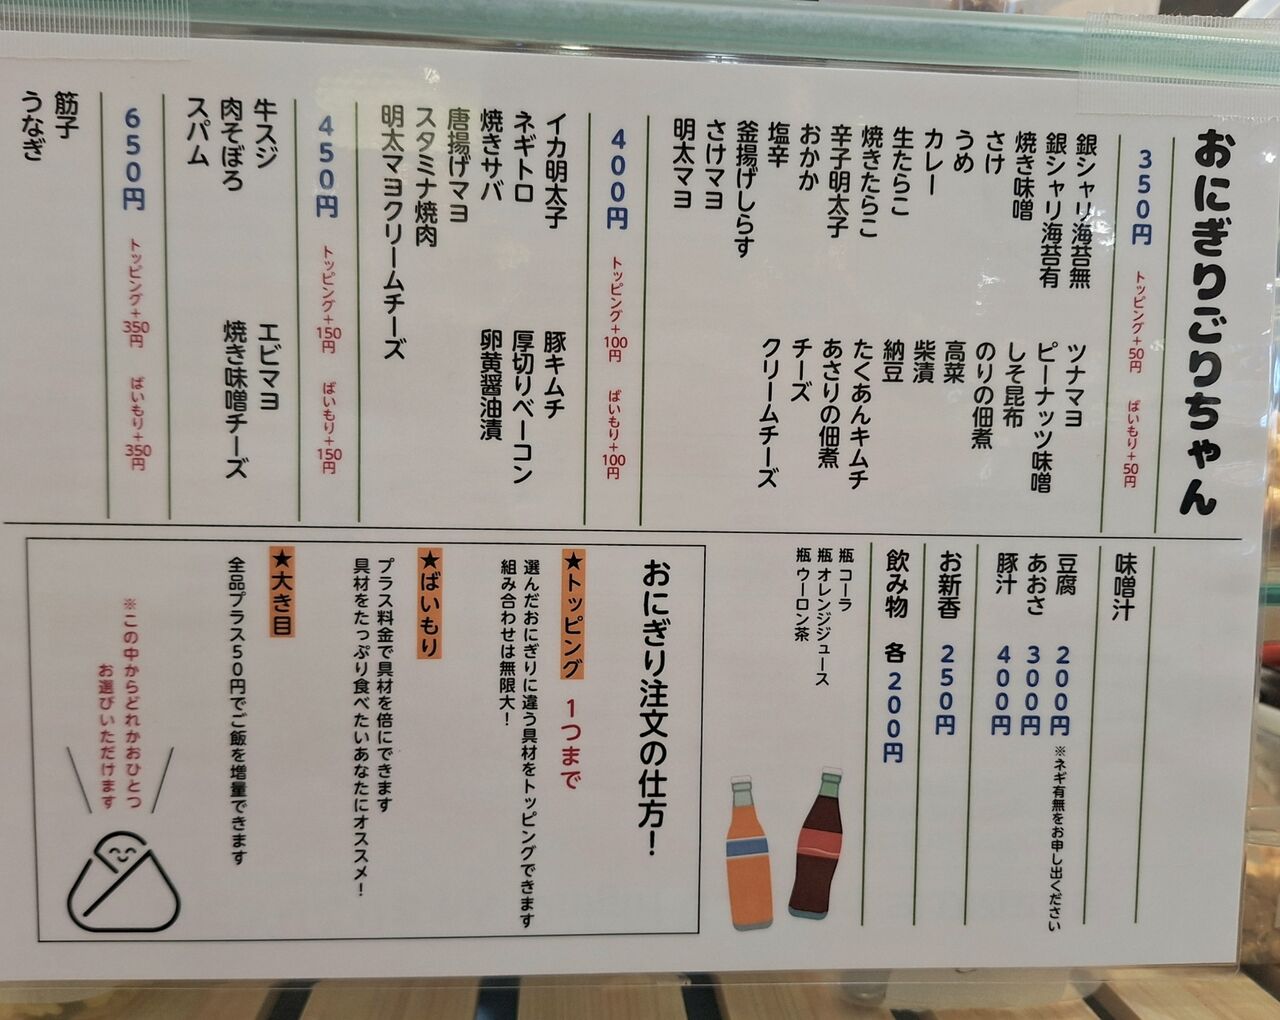 おにぎりごりちゃん
350円 トッピング+50円 ばいもり+50円
銀シャリ海苔無
銀シャリ海苔有
焼き味噌
さけ
うめ
カレー
生たらこ
焼きたらこ
辛子明太子
おかか
塩辛
釜揚げしらす
さけマヨ
明太マヨ
ツナマヨ
ピーナッツ味噌
しそ昆布
のりの佃煮
高菜
柴漬
納豆
たくあんキムチ
あさりの佃煮
チーズ
クリームチーズ
400円 トッピング+100円 ばいもり+100円
イカ明太子
ネギトロ
焼きサバ
唐揚げマヨ
スタミナ焼肉
明太マヨクリームチーズ
豚キムチ
厚切りベーコン
卵黄醤油漬
450円 トッピング+150円 ばいもり+150円
牛スジ
肉そぼろ
スパム
エビマヨ
焼き味噌チーズ
650円 トッピング+350円 ばいもり+350円
筋子
うなぎ
味噌汁
豆腐 200円 ※ネギ有無をお申し出ください
あおさ 300円
豚汁 400円
お新香 250円
飲み物 各200円
瓶 コーラ
瓶 オレンジジュース
瓶 ウーロン茶
おにぎり注文の仕方！
★トッピング 1つまで
選んだおにぎりに違う具材をトッピングできます
組み合わせは無限大！
★ばいもり
プラス料金で具材を倍にできます
具材をたっぷり食べたいあなたにオススメ！
★大き目
全品プラス50円でご飯を増量できます
※この中からどれかおひとつ
お選びいただけます